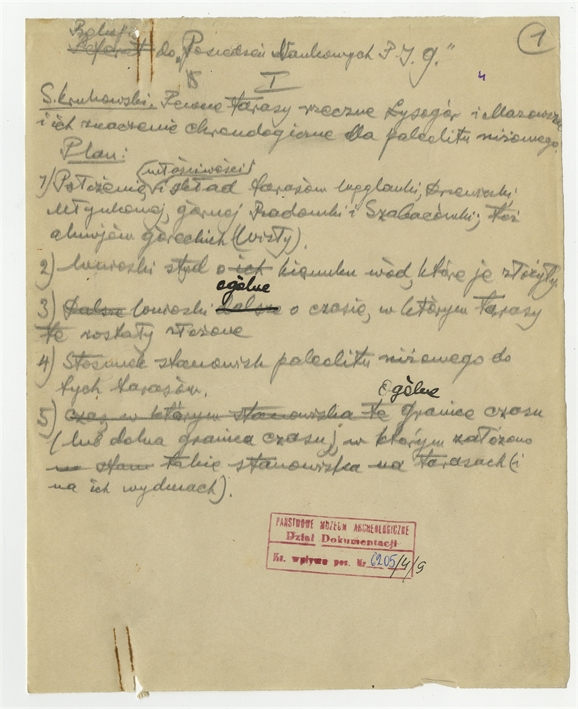 1
do "Posiedzeń Naukowych P.I.G."
I
S. Krukowski. Pewne tarasy rzeczne Łysogór i Mazowsza
i ich znaczenie chronologiczne dla paleolitu niżowego.
Plan:
właściwości
1) Położenie, i skład tarasów
górnej Radomki i Szabasówki, też
aluwjów góreckich (Wisły).
2) Wnioski stąd o ich kierunku wód, które je złożyły
ogólne
3) Dalsze wnioski dalsze o czasie, w którym tarasy
te zostały złożone
4) Stosunek stanowisk paleolitu niżowego do
tych tarasów.
ogólne
5) Czas w którym stanowiska te granice czasu
(lub dolna granica czasu), w którym założono
takie stanowiska na tarasach (i
na ich wydmach).
PAŃSTWOWE MUZEUM ARCHEOLOGICZNE
Dział Dokumentacji
Kr. wpływu poz. Nr 6205/4/9